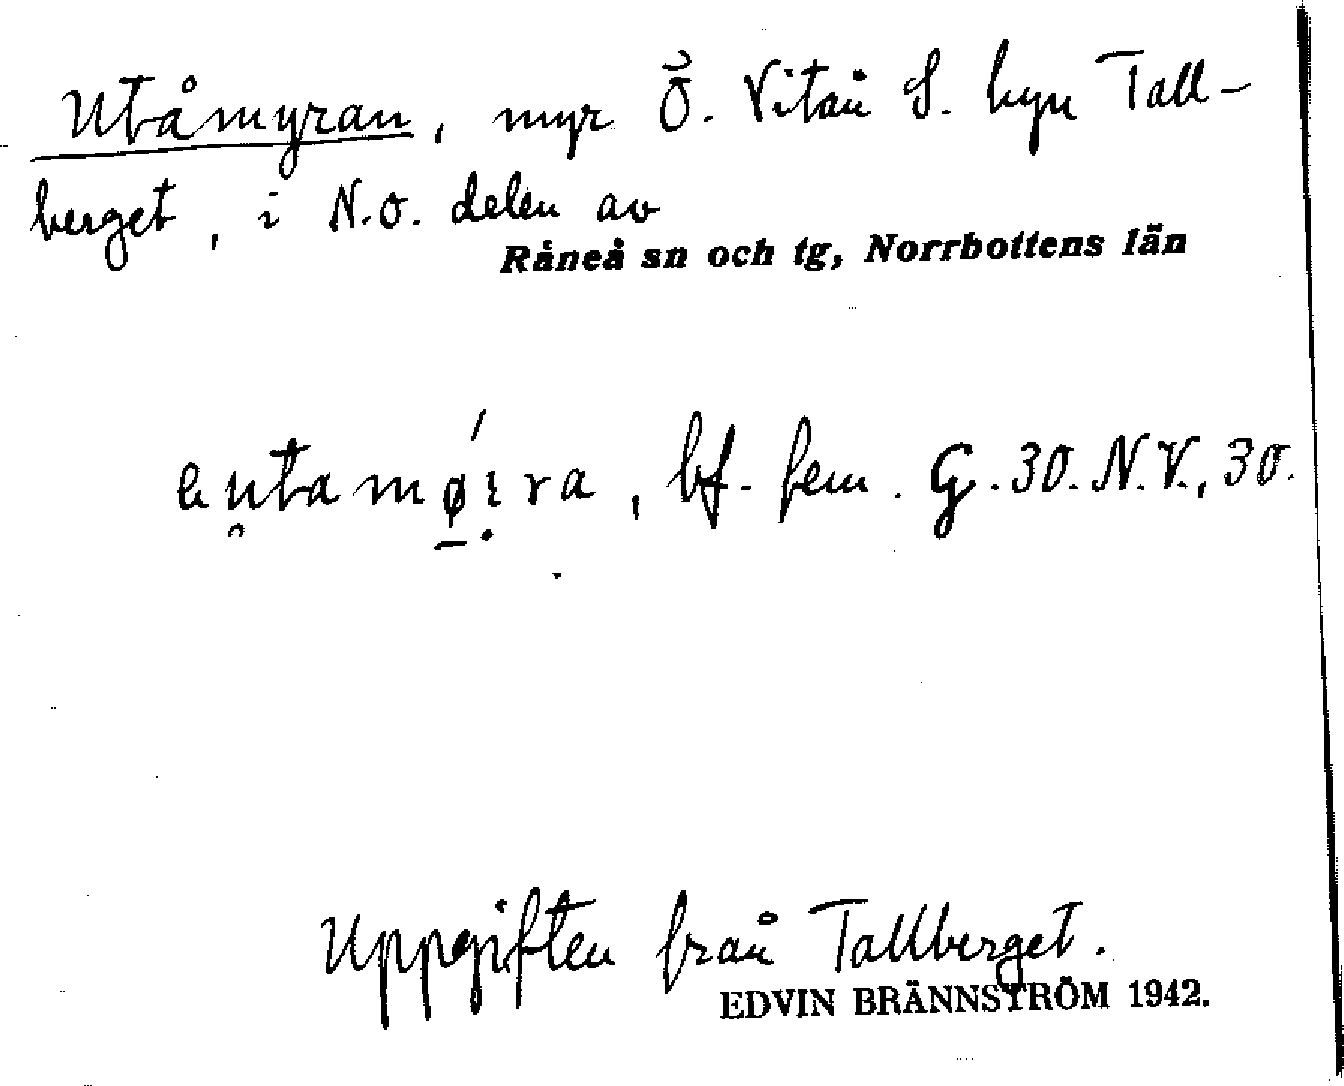 Utåmyran, myr Ö. Vitån S. byn Tall-
berget, i N.O. delen av
Råneå sn och tg, Norrbottens län
bf. fem. G. 30. N.V., 30.
Uppgiften från Tallberget.
EDVIN BRÄNNSTRÖM 1942.